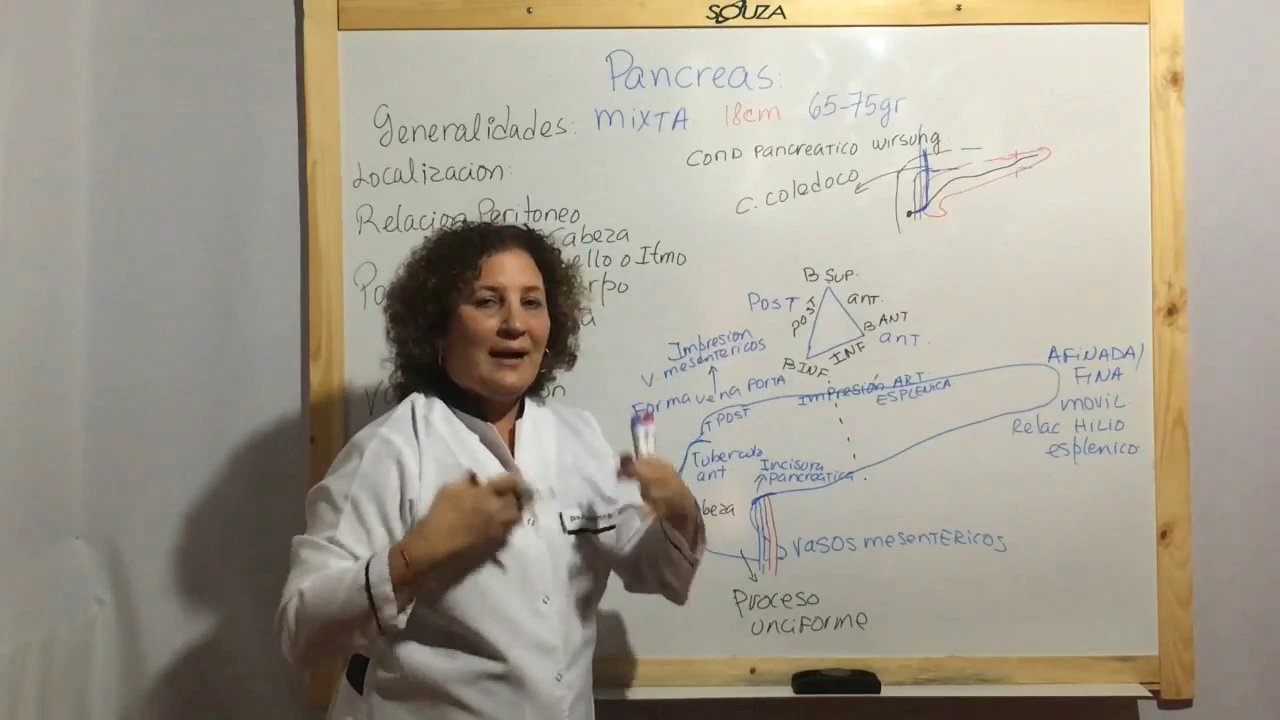 SOUZA
Pancreas:
Generalidades: MIXTA 18cm 65-75gr
Localizacion:
Relacion Peritoneo
Cabeza
ello o Itmo
rpo
a
COND Pancreatico wirsung
C. coledoco
B SUP.
POST
Post
ant.
B ANT
ant.
INF
B INF.
Impresion
V. mesentericos
Forma vena PORTA
T POST
Impresión ART.
ESPLENICA
AFINADA/
FINA
movil
Relac HILIO
esplenico
Tuberculo
ant
Incisura
Pancreatica
beza
VASOS mesentericos
Proceso
unciforme